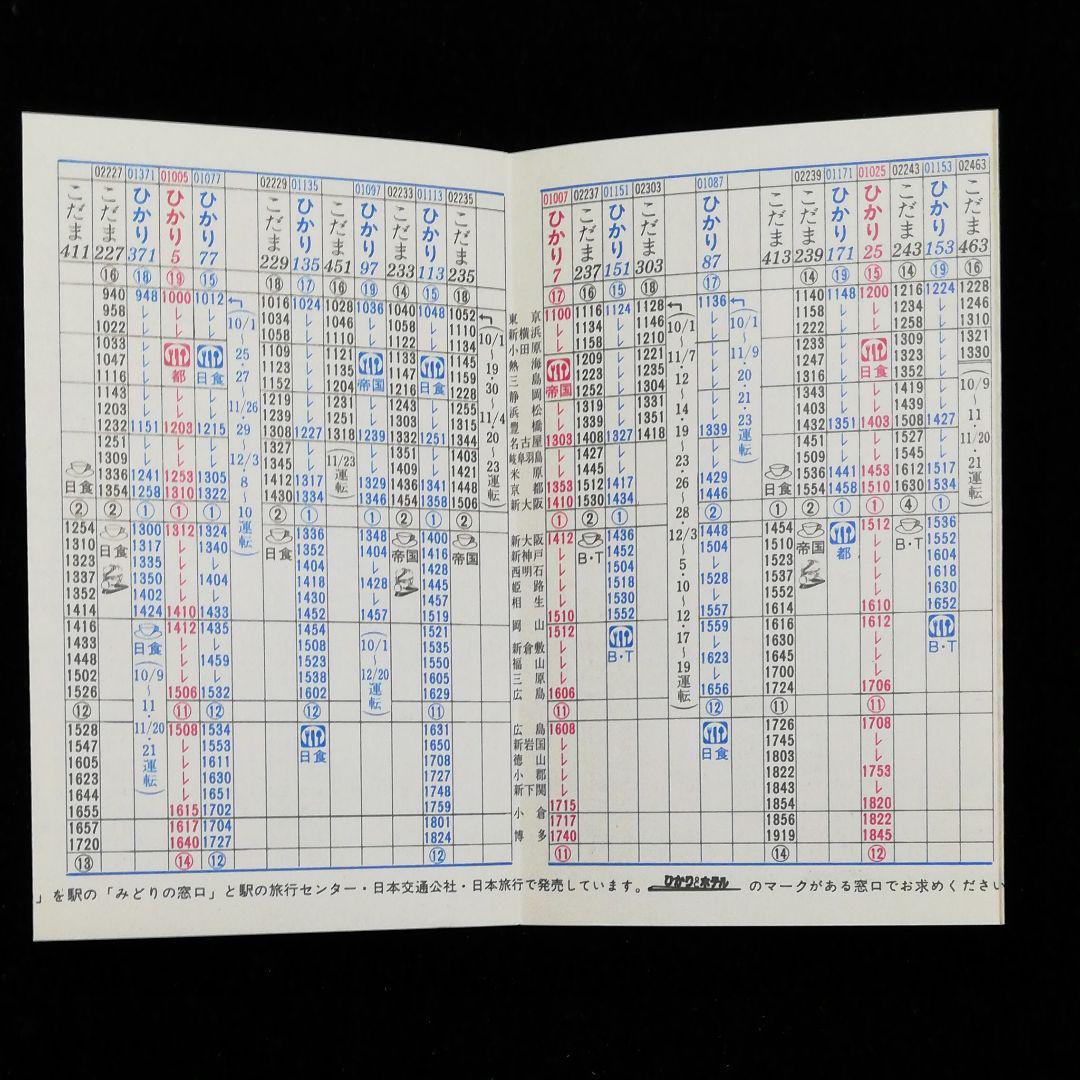 こだま 411 日食 ② 1254 1310 1323 1337 1352 1414 1416 1433 1448 1502 1526 ⑫ 1528 1547 1605 1623 1644 1655 1657 1720 ⑬
02227 こだま 227 ⑯ 940 958 1022 1033 1047 1116 1143 1203 1232 1251 1309 1336 1354 ② 日食
01371 ひかり 371 ⑱ 948 レ レ レ レ レ レ レ 1151 レ レ 1241 1258 ① 1300 1317 1335 1350 1402 1424 日食 (10/9〜11・11/20・21運転)
01005 ひかり 5 ⑲ 1000 レ レ 都 レ レ 1203 レ レ 1253 1310 ① 1312 レ レ レ レ 1410 1412 レ レ レ 1506 ⑪ 1508 レ レ レ レ 1615 1617 1640 ⑭
01077 ひかり 77 ⑮ 1012 レ レ 日食 レ レ 1215 レ レ 1305 1322 ① 1324 1340 レ 1404 レ 1433 1435 レ 1459 レ 1532 ⑫ 1534 1553 1611 1630 1651 1702 1704 1727 ⑫
(10/1〜25・27〜11/26 29〜12/3・8〜10運転)
02229 こだま 229 ⑱ 1016 1034 1058 1109 1123 1152 1219 1239 1308 1327 1345 1412 1430 ② 日食
01135 ひかり 135 ⑰ 1024 レ レ レ レ レ レ レ 1227 レ レ 1317 1334 ① 1336 1352 1404 1418 1430 1452 1454 1508 1523 1538 1602 ⑫ 日食
こだま 451 ⑯ 1028 1046 1110 1121 1135 1204 1231 1251 1318 (11/23運転)
01097 ひかり 97 ⑲ 1036 レ レ 帝国 レ レ 1239 レ レ 1329 1346 ① 1348 1404 レ 1428 レ 1457 (10/1〜12/20運転)
02233 こだま 233 ⑭ 1040 1058 1122 1133 1147 1216 1243 1303 1332 1351 1409 1436 1454 ② 帝国
01113 ひかり 113 ⑮ 1048 レ レ 日食 レ レ 1251 レ レ 1341 1358 ① 1400 1416 1428 1445 1457 1519 1521 1535 1550 1605 1629 ⑪ 1631 1650 1708 1727 1748 1759 1801 1824 ⑫
02235 こだま 235 ⑱ 1052 1110 1134 1145 1159 1228 1255 1315 1344 1403 1421 1448 1506 ② 帝国
(10/1〜19・30〜11/4 20〜23運転)
東京
新横浜
小田原
熱海
三島
静岡
浜松
豊橋
名古屋
岐阜羽島
米原
京都
新大阪
新大阪
新神戸
西明石
姫路
相生
岡山
新倉敷
福山
三原
広島
広島
新岩国
徳山
小郡
新下関
小倉
博多
01007 ひかり 7 ⑰ 1100 レ レ 帝国 レ レ 1303 レ レ 1353 1410 ① 1412 レ レ レ レ 1510 1512 レ レ レ 1606 ⑪ 1608 レ レ レ レ 1715 1717 1740 ⑪
02237 こだま 237 ⑯ 1116 1134 1158 1209 1223 1252 1319 1339 1408 1427 1445 1512 1530 ② B・T
01151 ひかり 151 ⑮ 1124 レ レ レ レ レ レ レ 1327 レ レ 1417 1434 ① 1436 1452 1504 1518 1530 1552 B・T
02303 こだま 303 ⑱ 1128 1146 1210 1221 1235 1304 1331 1351 1418
(10/1〜11/7・12〜14 19〜23・26〜28・12/3・5・10〜12・17〜19運転)
01087 ひかり 87 ⑰ 1136 レ レ レ レ レ レ レ 1339 レ レ 1429 1446 ① 1448 1504 レ 1528 レ 1557 1559 レ 1623 レ 1656 ⑫ 日食
(10/1〜11/9・20・21・23運転)
こだま 413 日食 ② 1454 1510 1523 1537 1552 1614 1616 1630 1645 1700 1724 ⑪ 1726 1745 1803 1822 1843 1854 1856 1919 ⑭
02239 こだま 239 ⑭ 1140 1158 1222 1233 1247 1316 1343 1403 1432 1451 1509 1536 1554 ② 帝国
01171 ひかり 171 ⑲ 1148 レ レ レ レ レ レ レ 1351 レ レ 1441 1458 ① 都
01025 ひかり 25 ⑮ 1200 レ レ 日食 レ レ 1403 レ レ 1453 1510 ① 1512 レ レ レ レ 1610 1612 レ レ レ 1706 ⑪ 1708 レ レ 1753 レ 1820 1822 1845 ⑫
02243 こだま 243 ⑭ 1216 1234 1258 1309 1323 1352 1419 1439 1508 1527 1545 1612 1630 ④ B・T
01153 ひかり 153 ⑲ 1224 レ レ レ レ レ レ レ 1427 レ レ 1517 1534 ① 1536 1552 1604 1618 1630 1652 B・T
02463 こだま 463 ⑯ 1228 1246 1310 1321 1330 (10/9〜11・11/20・21運転)
」を駅の「みどりの窓口」と駅の旅行センター・日本交通公社・日本旅行で発売しています。ひかり&ホテル のマークがある窓口でお求めください